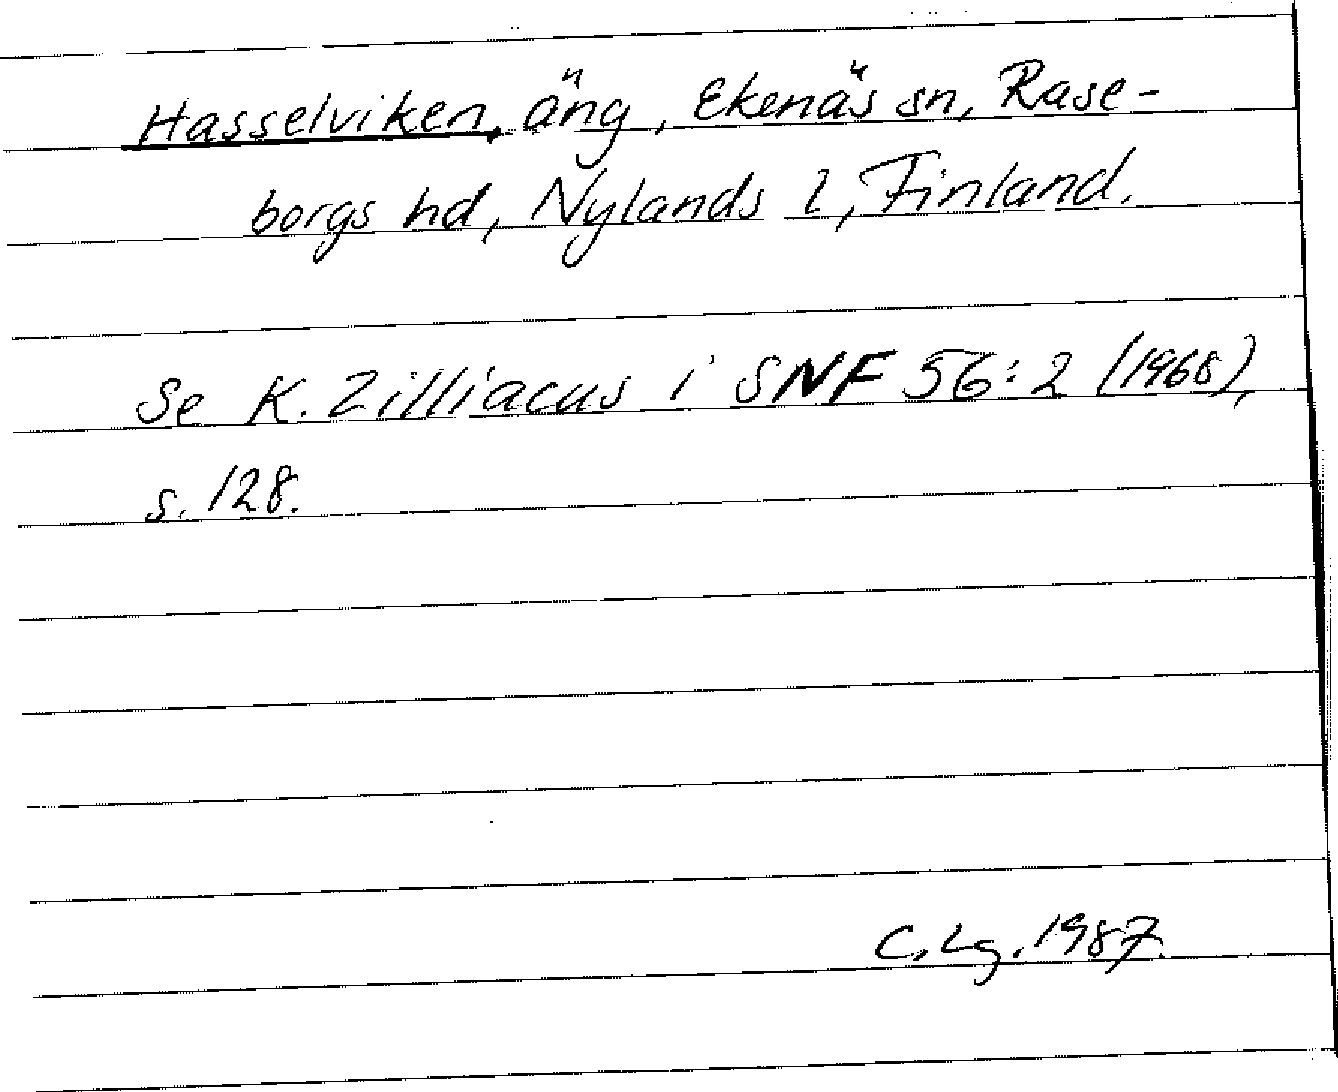 Hasselviken, äng, Ekenäs sn, Rase-
borgs hd, Nylands l, Finland.
Se K. Zilliacus i SNF 56:2 (1968),
s. 128.
C. Lg. 1987.